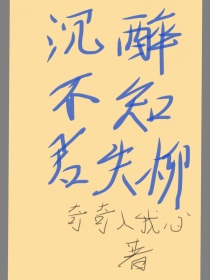 沉醉
不知
君失柳
奇奇入我心
著